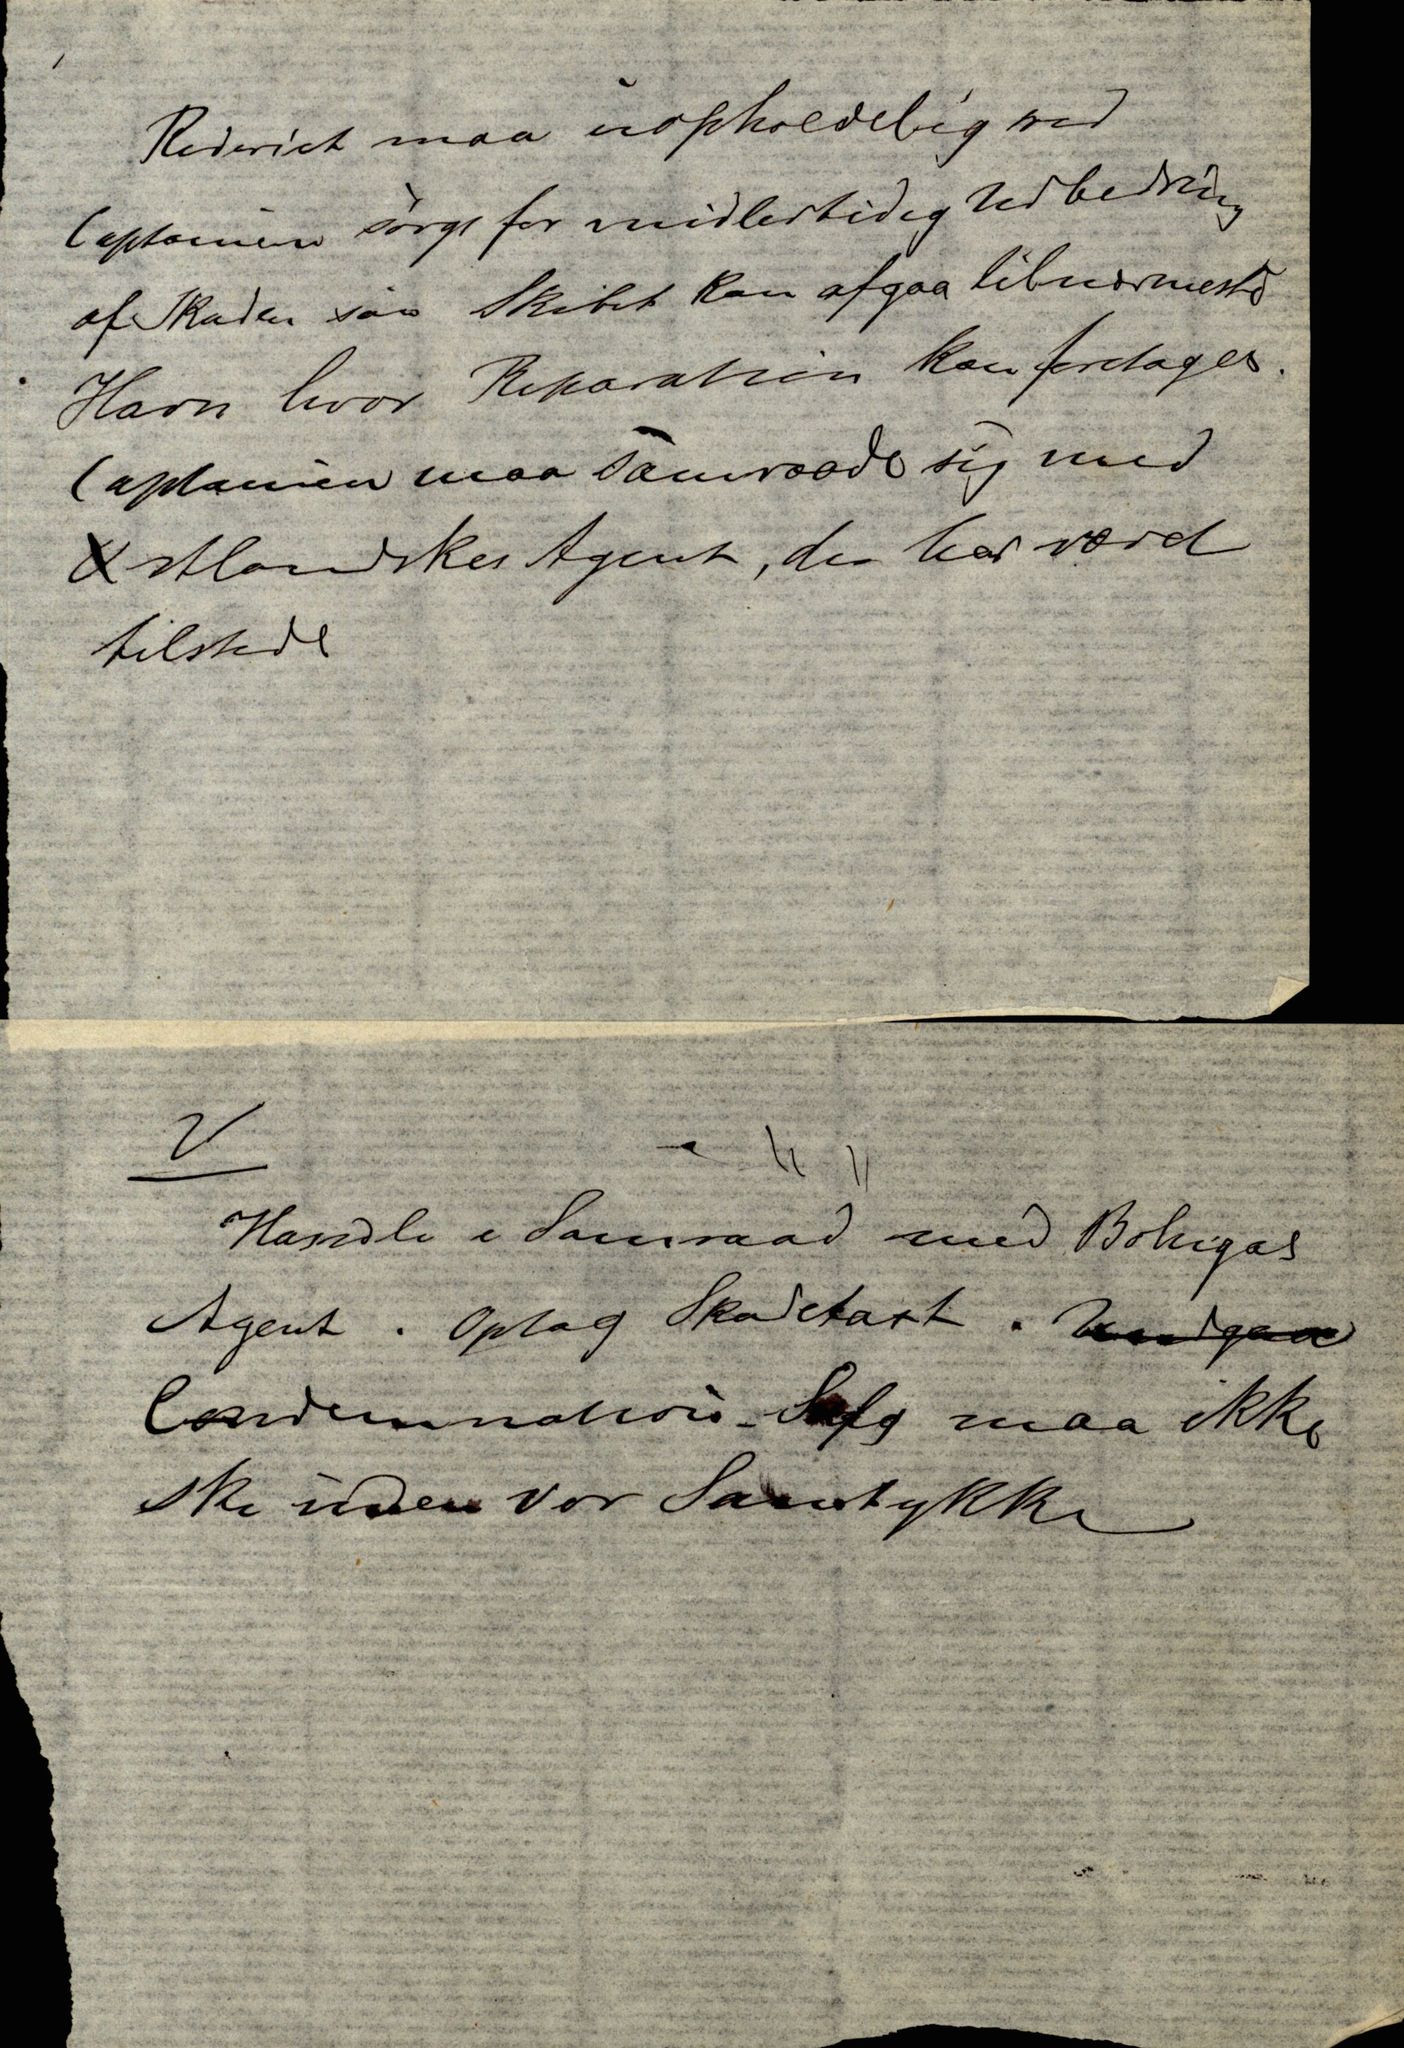 Rederiet maa uopholdelig ved
Captainen sørge for midlertidig Udbedring
af Skaden saa Skibet kan afgaa til nærmeste
Havn hvor Reparation kan foretages.
Captainen maa samraade sig med
Agent, der har værd
tilstede
V
Handle i Samraad med Bohigas
Agent. Optag Skadetaxt. Undgaa
Condemnation. Salg maa ikke
ske uden vor Samtykke